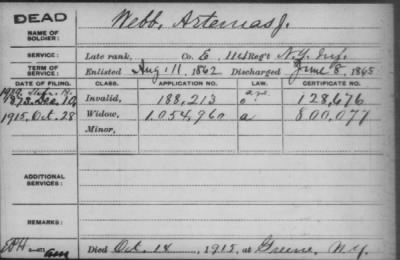 DEAD
NAME OF SOLDIER:
Webb, Artemas J.
SERVICE:
Late rank, Co. E, 114 Reg't N.Y. Inf.
TERM OF SERVICE:
Enlisted Aug 11, 1862 Discharged June 8, 1865
DATE OF FILING. CLASS. APPLICATION NO. LAW. CERTIFICATE NO.
1879. Dec. 10, Invalid, 188,213 128,676
1915, Oct. 28 Widow, 1.054,960 a 800,077
Minor,
ADDITIONAL SERVICES:
REMARKS:
Died Oct. 14, 1915, at Greene, N.Y.